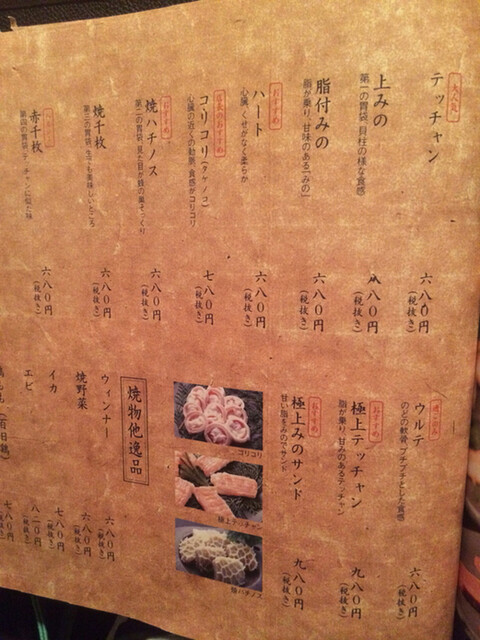 大人気!
テッチャン
六八0円
(税抜き)
上みの
第一の胃袋、貝柱の様な食感
八八0円
(税抜き)
脂付みの
脂が乗り、甘味のある「みの」
六八0円
(税抜き)
おすすめ
ハート
心臓、くせがなく柔らか
六八0円
(税抜き)
店長のおすすめ
コリコリ(タケノコ)
心臓の近くの動脈、食感がコリコリ
七八0円
(税抜き)
おすすめ
焼ハチノス
第二の胃袋、見た目が蜂の巣そっくり
六八0円
(税抜き)
焼千枚
第三の胃袋、生でも美味しいところ
六八0円
(税抜き)
赤千枚
六八0円
(税抜き)
ウルテ
のどの軟骨、プチプチとした食感
六八0円
(税抜き)
おすすめ
極上テッチャン
脂が乗り、甘みのあるテッチャン
九八0円
(税抜き)
おすすめ
極上みのサンド
甘い脂をみのでサンド
九八0円
(税抜き)
コリコリ
極上テッチャン
焼ハチノス
焼物他逸品
ウィンナー
六八0円
(税抜き)
焼野菜
六八0円
(税抜き)
イカ
七八0円
(税抜き)
エビ
八二0円
(税抜き)
七八0円
(税抜き)